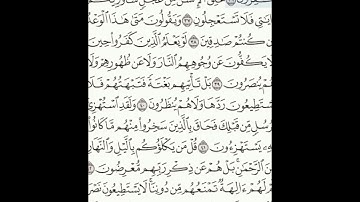 ءَايَٰتِى فَلَا تَسْتَعْجِلُونِ ٣٧ وَيَقُولُونَ مَتَىٰ هَٰذَا ٱلْوَعْدُ
إِن كُنتُمْ صَٰدِقِينَ ٣٨ لَوْ يَعْلَمُ ٱلَّذِينَ كَفَرُوا۟ حِينَ
لَا يَكُفُّونَ عَن وُجُوهِهِمُ ٱلنَّارَ وَلَا عَن ظُهُورِهِمْ وَلَا
هُمْ يُنصَرُونَ ٣٩ بَلْ تَأْتِيهِم بَغْتَةً فَتَبْهَتُهُمْ فَلَا
يَسْتَطِيعُونَ رَدَّهَا وَلَا هُمْ يُنظَرُونَ ٤٠ وَلَقَدِ ٱسْتُهْزِئَ
بِرُسُلٍ مِّن قَبْلِكَ فَحَاقَ بِٱلَّذِينَ سَخِرُوا۟ مِنْهُم مَّا كَانُوا۟
بِهِۦ يَسْتَهْزِءُونَ ٤١ قُلْ مَن يَكْلَؤُكُم بِٱلَّيْلِ وَٱلنَّهَارِ
مِنَ ٱلرَّحْمَٰنِ بَلْ هُمْ عَن ذِكْرِ رَبِّهِم مُّعْرِضُونَ ٤٢
أَمْ لَهُمْ ءَالِهَةٌ تَمْنَعُهُم مِّن دُونِنَا لَا يَسْتَطِيعُونَ نَصْرَ